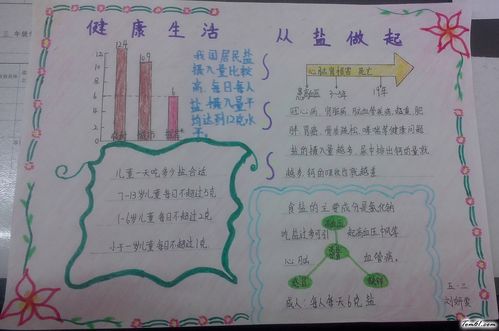 健康生活 从盐做起
12.4
10.9
6
14
12
10
8
6
4
2
0
农村 城市
我国居民盐
摄入量比较
高,每日每人
盐摄入量平
均达到12克水
平。
心脑肾损害 死亡
3-5年
冠心病、肾脏病、脑血管疾病、超重、肥
胖、胃癌、骨质疏松、哮喘等健康问题
盐的摄入量越多,尿中排出钙的量就
越多,钙的吸收也就越差
儿童一天吃多少盐合适
7-13岁儿童每日不超过5克
1-6岁儿童每日不超过2克
小于一岁儿童每日不超过1克
食盐的主要成分是氯化钠
吃盐过多可引 起高血压中风等
心脑 血管病。
成人:每人每天6克盐
五·三
刘妍雯
Tom61.com